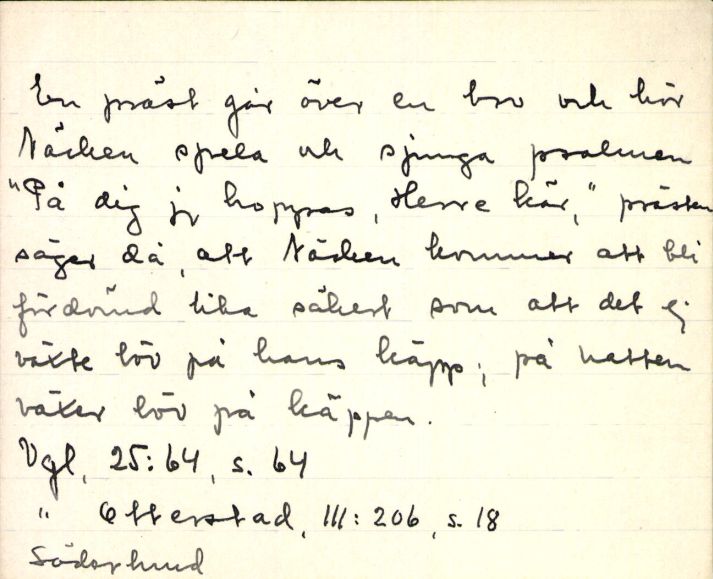 En präst går över en bro och hör
Näcken spela och sjunga psalmen
"På dig jg hoppas, Herre kär," prästen
säger då, att Näcken kommer att bli
fördömd lika säkert som att det ej
växte löv på hans käpp; på natten
växer löv på käppen.
Vgl, 25:64, s. 64
" Otterstad, III: 206, s. 18